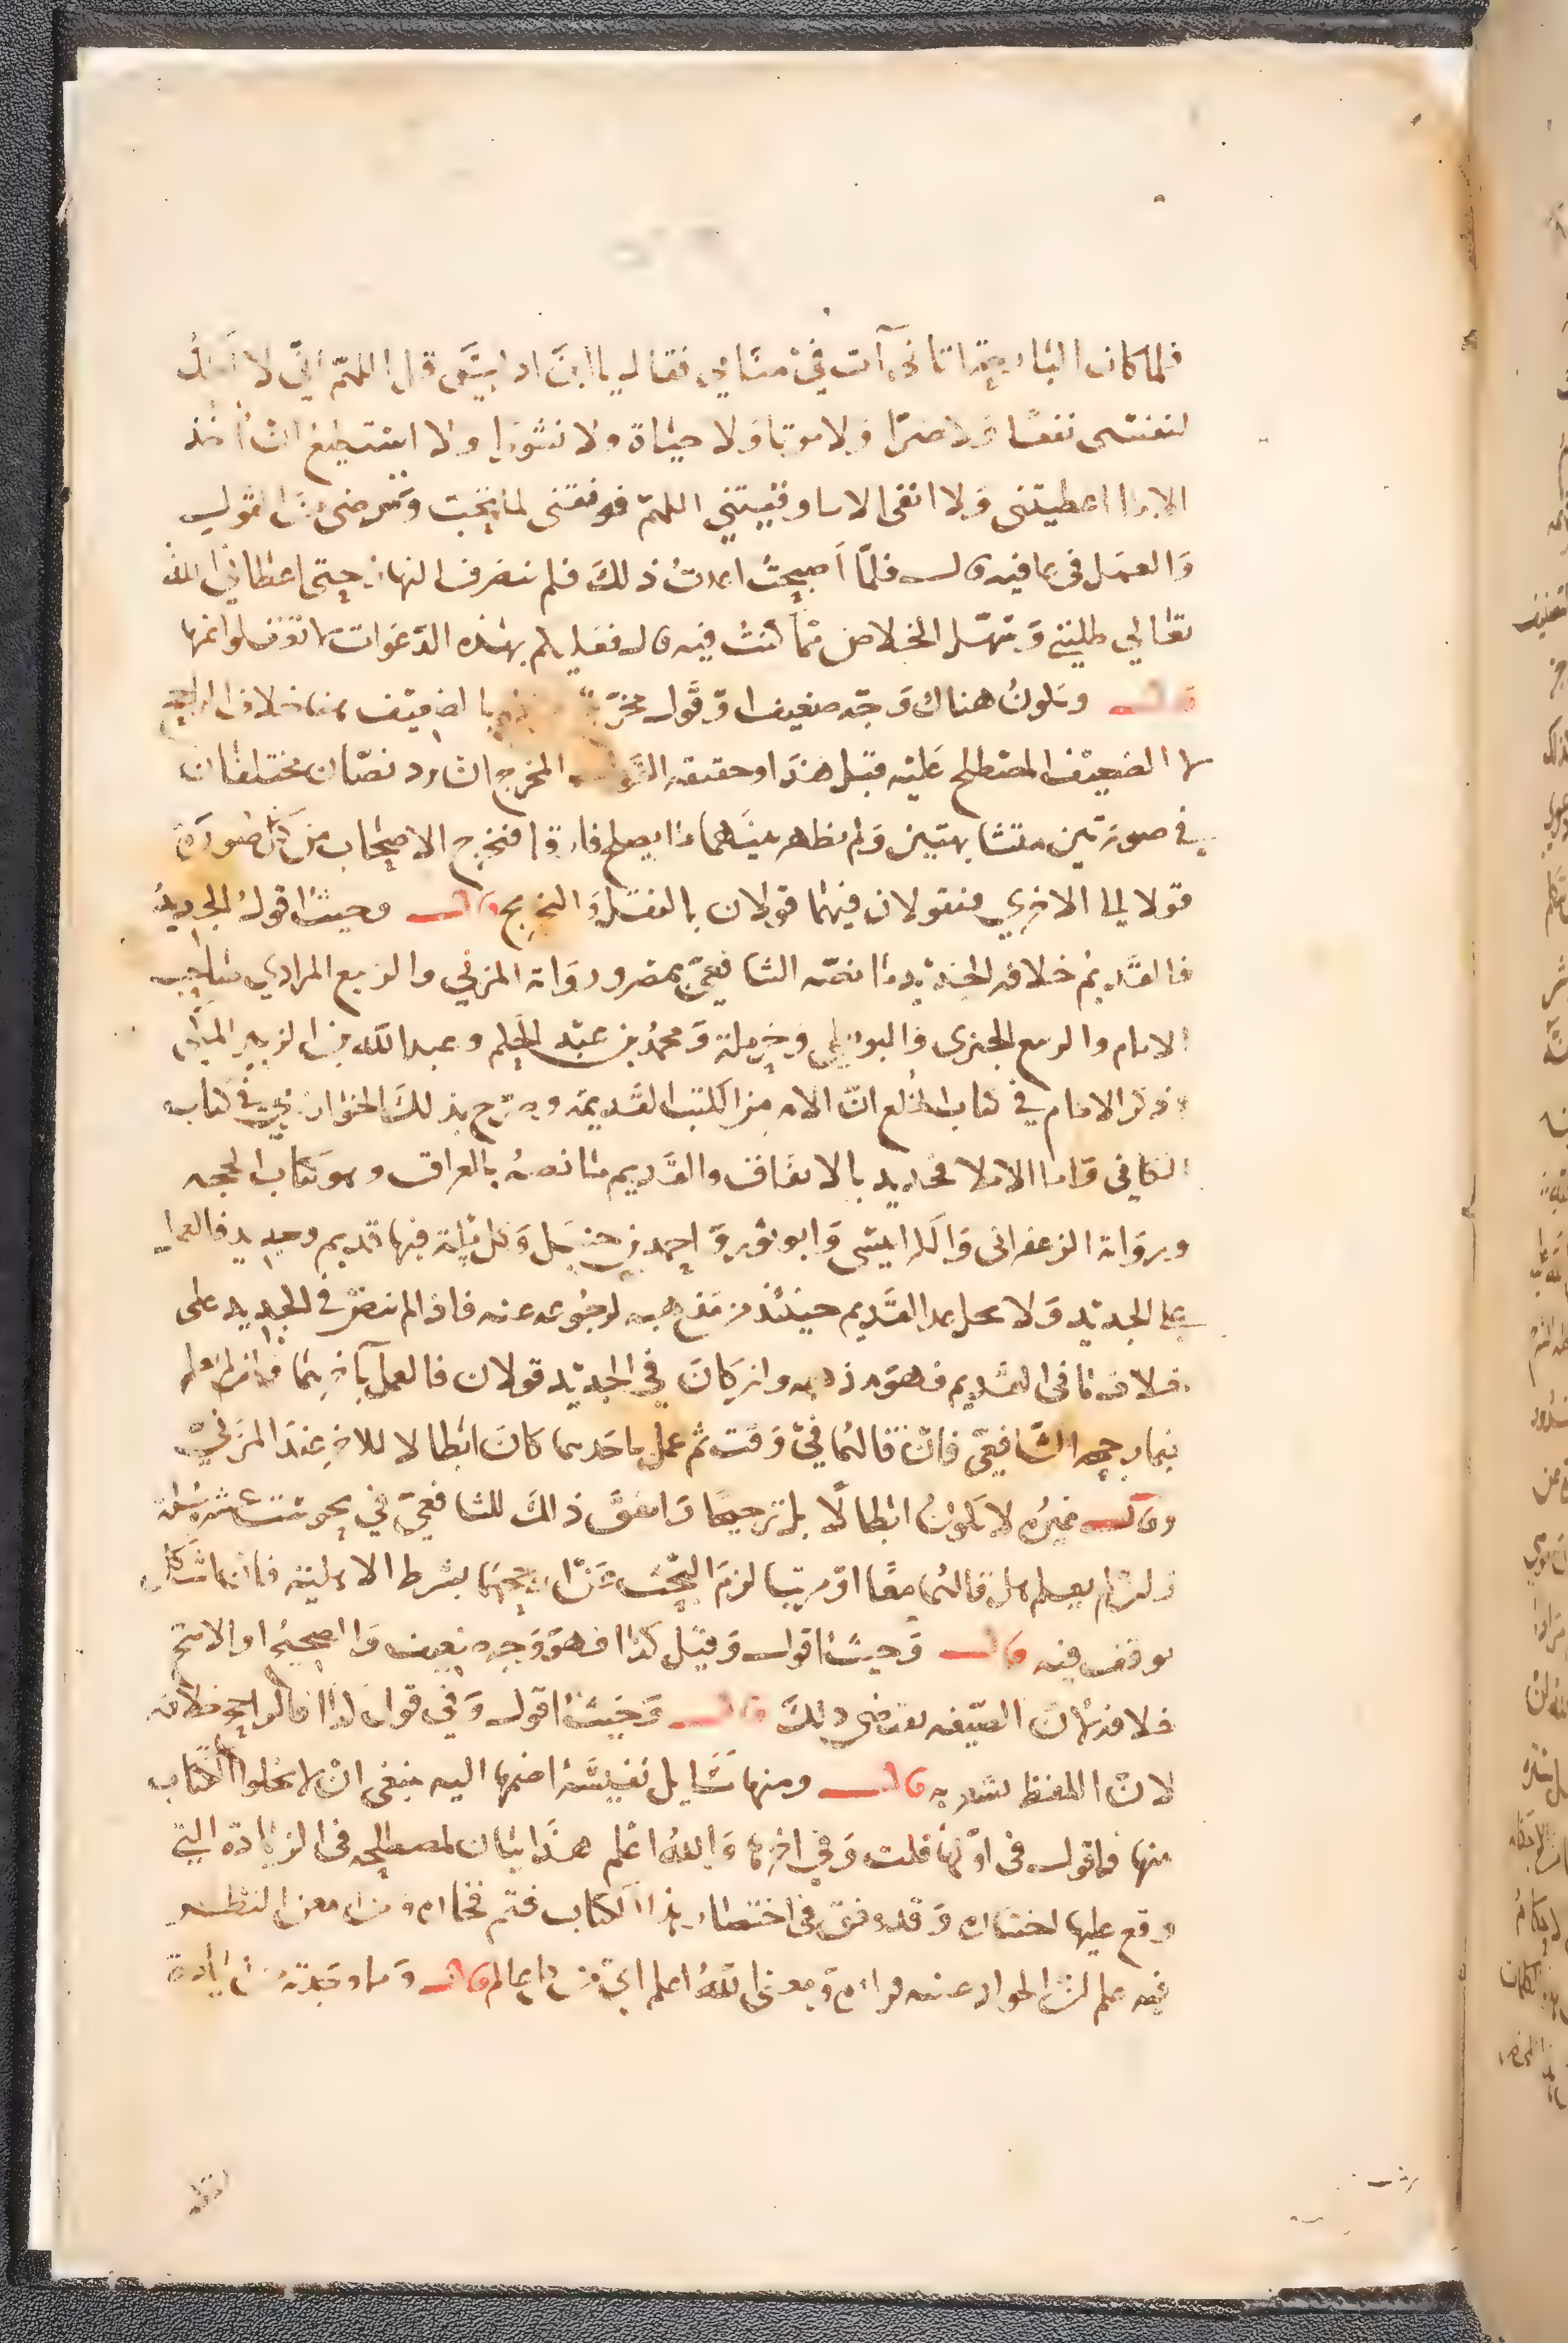 فلما كان البارحة اتاني آت في منامي فقال يا ابن ادريس قل اللهم اني لا املك
لنفسي نفعا ولا ضرا ولا موتا ولا حياة ولا نشورا ولا استطيع ان آخذ
الا ما اعطيتني ولا اتقي الا ما وقيتني اللهم فوفقني لما تحب وترضى من القول
والعمل في عافيه قال فلما أصبحت اعدت ذلك فلم ينصرف النهار حتى اعطاني الله
تعالى طلبتي وسهل الخلاص مما كنت فيه قال فعليكم بهذه الدعوات لا تغفلوا عنها
قال ويكون هناك وجه ضعيف او قول مخرج بالضعيف هنا خلاف الراجح
لا الضعيف المصطلح عليه قبل هذا وحقيقه القول المخرج ان يرد نصان مختلفان
في صورتين متشابهتين ولم يظهر بينهما ما يصلح فارقا فيخرج الاصحاب من كل صورة
قولا الى الاخرى فيقولان فيهما قولان بالنقل والتخريج قال وحيث اقول الجديد
فالقديم خلافه الجديد ما نصه الشافعي بمصر ورواته المزني والربيع المرادي صاحب
الامام والربيع الجيزي والبويطي وحرملة ومحمد بن عبد الحكم وعبد الله بن الزبير المكي
وذكر الامام في كتاب الخلع ان الام من الكتب القديمه وصرح بذلك الخوارزمي في كتاب
الكافي واما الاملا فجديد بالاتفاق والقديم ما نصه بالعراق وهو كتاب الحجه
ورواته الزعفراني والكرابيسي وابو ثور واحمد بن حنبل وكل مسئلة فيها قديم وجديد فالعمل
على الجديد ولا يحل عد القديم حينئذ من مذهبه لرجوعه عنه فاذا لم ينص في الجديد على
خلاف ما في القديم فهو مذهبه وان كان في الجديد قولان فالعمل بآخرهما فان لم يعلم
فبما رجحه الشافعي فان قالهما في وقت ثم عمل باحدهما كان ابطالا للاخر عند المزني
وقال غيره لا يكون ابطالا بل ترجيحا واتفق ذلك للشافعي في نحو ست عشرة مسئلة
وان لم يعلم هل قالهما معا او مرتبا لزم البحث عن ارجحهما بشرط الاهلية فان اشكل
توقف فيه قال وحيث اقول وقيل كذا فهو وجه ضعيف والصحيح او الاصح
خلافه لان الصيغه تقتضي ذلك قال وحيث اقول وفي قول كذا فالراجح خلافه
لان اللفظ يشعر به قال ومنها مسايل نفيسة اضمها اليه ينبغي ان لا يخلوا الكتاب
منها فاقول في اولها قلت وفي اخرها والله اعلم هذا بيان لمصطلحه في الزيادة التي
وقع عليها اختياره وقد وفق في اختصار هذا الكتاب
والله اعلم اي من كل عالم قال وما وجدته من زيادة